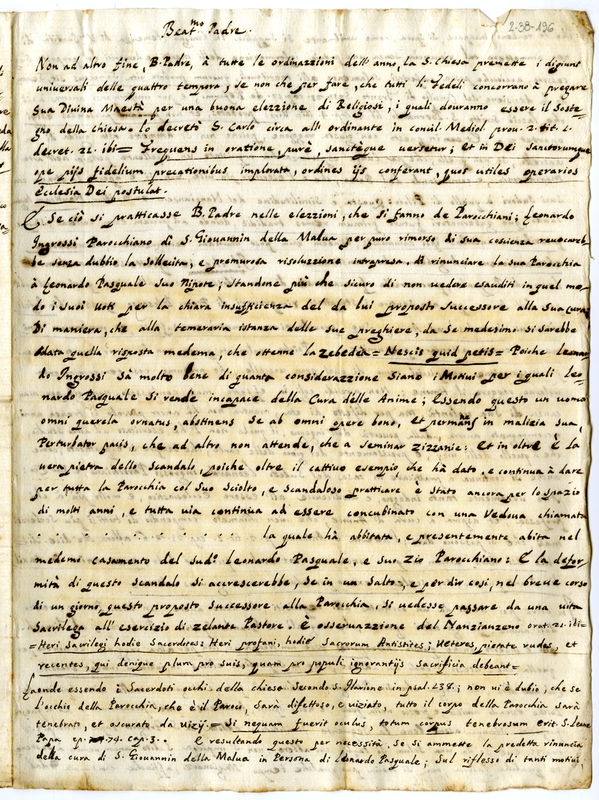 2-38-196
Beat.mo Padre.
Non ad altro fine, B. Padre, à tutte le ordinazzioni dell'anno, la S. Chiesa premette i digiuni
universali delle quattro tempora, se non che per fare, che tutti li Fedeli concorrano à pregare
Sua Diuina Maestà per una buona elezzione di Religiosi, i quali douranno essere il Soste-
gno della chiesa. lo decretò S. Carlo circa all' ordinante in concil. Mediol. prou. 2. tit. 2.
decret. 22. ibi= Frequens in oratione, purè, sanctèque uersetur; et in Dei sanctorumque
ope pijs fidelium precationibus implorata, ordines ijs conferant, quos utiles operarios
Ecclesia Dei postulat.
E Se ciò si pratticasse B. Padre nelle elezzioni, che si fanno de Parocchiani; Leonardo
Ingrossi Parocchiano di S. Giouannin della Malua per puro rimorso di sua coscienza reuocareb-
be senza dubbio la sollecita, e premurosa risoluzzione intrapresa, di rinunciare la sua Parocchia
à Leonardo Pasquale suo Nipote; standone più che sicuro di non uedere esauditi in quel mo-
do i suoi uoti per la chiara insufficienza del da lui proposto successore alla sua cura
Di maniera, che alla temeraria istanza delle sue preghiere, da se medesimo si sarebbe
data quella risposta medema, che ottenne la Zebedea= Nescis quid petis= Poiche Leonar-
do Ingrossi sà molto bene di quanta considerazzione siano i Motiui per i quali Leo-
nardo Pasquale si rende incapace della Cura delle Anime; Essendo questo un uomo
omni querela ornatus, abstinens se ab omni opere bono, et permãns in malizia sua,
Perturbator pacis, che ad altro non attende, che a seminar zizzanie: et in oltre è la
uera pietra dello scandalo, poiche oltre il cattiuo esempio, che hà dato, e continua à dare
per tutta la Parocchia col suo sciolto, e scandaloso pratticare è stato ancora per lo spazio
di molti anni, e tutta uia continua ad essere concubinato con una Vedoua chiamata
. . . . . . . . . . . . la quale hà abbitata, e presentemente abita nel
medemo casamento del sud.o Leonardo Pasquale, e suo Zio Parocchiano: E la defor-
mità di questo scandalo si accrescerebbe, se in un salto, e pòr dir cosi, nel breue corso
di un giorno questo proposto successore alla Parocchia, si uedesse passare da una uita
sacrilega all' esercizio di zelante Pastore. È osseruazzione del Nanzianzeno orat. 21. ibi=
=Heri sacrilegi hodie Sacerdotes: Heri profani, hodie sacrorum Antistites; ueteres, pietate rudes, et
recentes, qui denique plura pro suis, quam pro populi ignorantijs sacrificia debeant=
Laonde essendo i sacerdoti occhi della chiesa secondo S. Ilarione in psal. 138.; non ui è dubio, che se
l'occhio della Parocchia, che è il Paroco, sarà difettoso, e uiziato, tutto il corpo della Parocchia sarà
tenebrato, et oscurato da uizij.= si nequam fuerit oculus, totum corpus tenebrosum erit. S. Leone
Papa ep. 74. cap. 3. . E resultando questo per necessità, se si ammette la predetta rinuncia
della cura di S. Giouannin della Malua in Persona di Leonardo Pasquale; sul riflesso di tanti motiui,